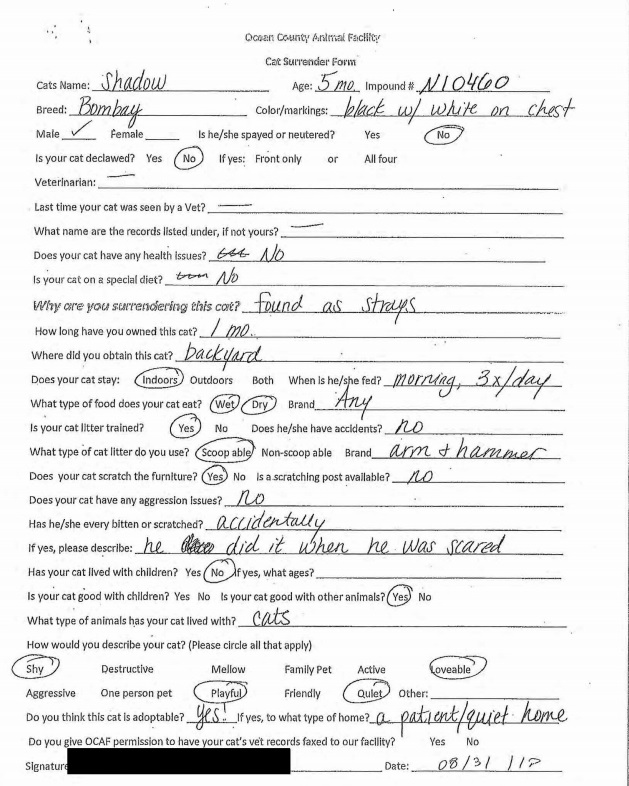 Ocean County Animal Facility
Cat Surrender Form
Cats Name: Shadow Age: 5 mo. Impound # N10460
Breed: Bombay Color/markings: black w/ white on chest
Male ✓ Female Is he/she spayed or neutered? Yes No
Is your cat declawed? Yes No If yes: Front only or All four
Veterinarian: —
Last time your cat was seen by a Vet? —
What name are the records listed under, if not yours? —
Does your cat have any health issues? No
Is your cat on a special diet? No
Why are you surrendering this cat? found as strays
How long have you owned this cat? 1 mo.
Where did you obtain this cat? backyard
Does your cat stay: Indoors Outdoors Both When is he/she fed? morning, 3x/day
What type of food does your cat eat? Wet Dry Brand Any
Is your cat litter trained? Yes No Does he/she have accidents? no
What type of cat litter do you use? Scoop able Non-scoop able Brand arm + hammer
Does your cat scratch the furniture? Yes No Is a scratching post available? no
Does your cat have any aggression issues? no
Has he/she every bitten or scratched? accidentally
If yes, please describe: he did it when he was scared
Has your cat lived with children? Yes No If yes, what ages?
Is your cat good with children? Yes No Is your cat good with other animals? Yes No
What type of animals has your cat lived with? cats
How would you describe your cat? (Please circle all that apply)
Shy Destructive Mellow Family Pet Active Loveable
Aggressive One person pet Playful Friendly Quiet Other:
Do you think this cat is adoptable? yes! If yes, to what type of home? a patient/quiet home
Do you give OCAF permission to have your cat's vet records faxed to our facility? Yes No
Signature Date: 08/31/